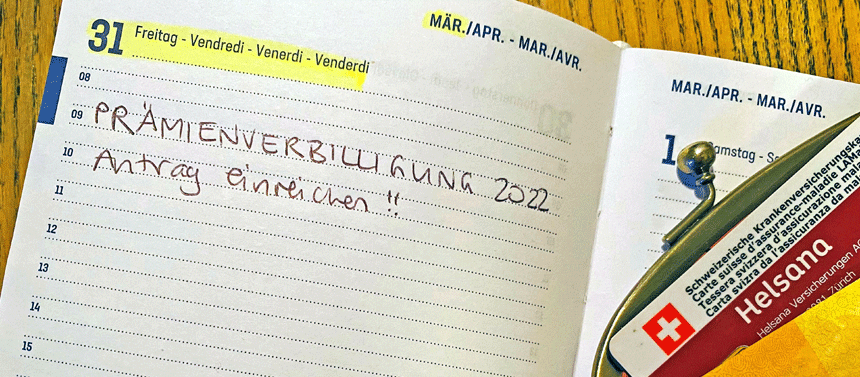 31 Freitag - Vendredi - Venerdi - Venderdi
MÄR./APR. - MAR./AVR.
08
09 PRÄMIENVERBILLIGUNG 2022
10 Antrag einreichen !!
11
12
13
14
15
MAR./APR. - MAR./AVR.
1 Samstag - Sa
Schweizerische Krankenversicherungska
Carte suisse d'assurance-maladie LAMa
Tessera svizzera d'assicurazione mala
Carta svizra da l'assicuranza da mal
Helsana
Helsana Versicherungen AG
Zürich